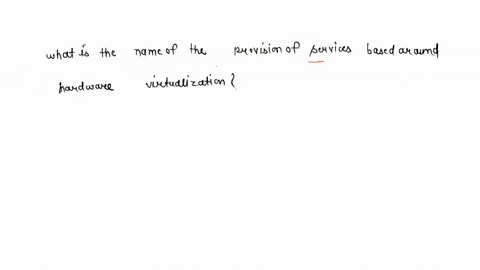 what is the name of the provision of services based around
hardware virtualization?